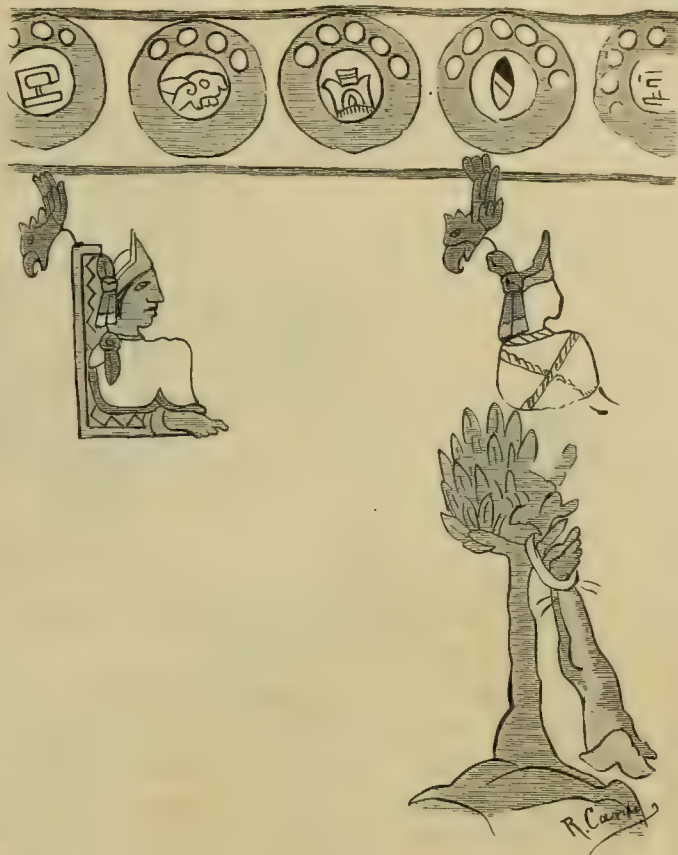 R. Cantó